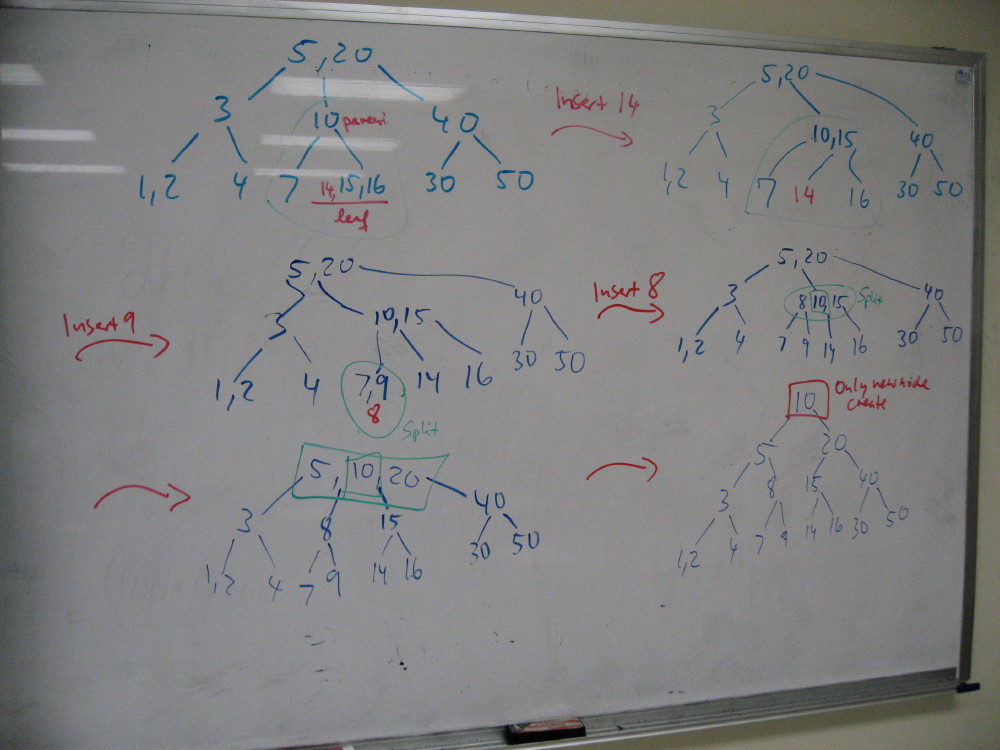 5,20
3 10 parent 40
1,2 4 7 14,15,16 30 50
leaf
Insert 14
5,20
3 10,15 40
1,2 4 7 14 16 30 50
Insert 9
5,20
3 10,15 40
1,2 4 7,9 14 16 30 50
8
Split
Insert 8
5,20
3 8 10 15 Split 40
1,2 4 7 9 14 16 30 50
5, 10, 20
3 8 15 40
1,2 4 7 9 14 16 30 50
10 Only new node
create
5 20
3 8 15 40
1,2 4 7 9 14 16 30 50